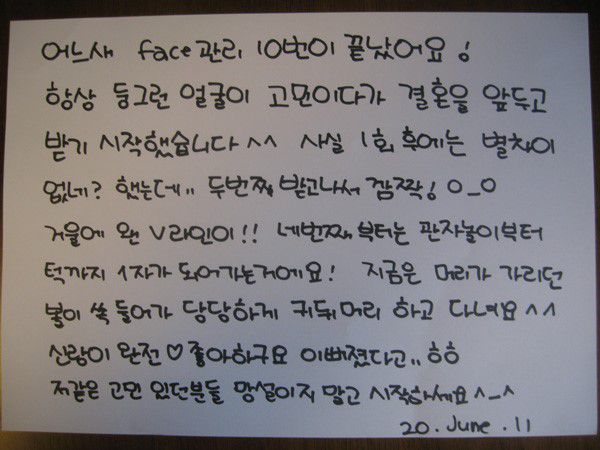 어느새 face관리 10번이 끝났어요!
항상 둥그런 얼굴이 고민이다가 결혼을 앞두고
받기 시작했습니다 ^^ 사실 1회 후에는 별차이
없네? 했는데.. 두번째 받고나서 깜짝! O_O
거울에 왠 V라인이!! 네번째부터는 관자놀이부터
턱까지 1자가 되어가는거에요! 지금은 머리가 가리던
볼이 쏙 들어가 당당하게 귀뒤머리 하고 다녀요^^
신랑이 완전♡좋아하구요 이뻐졌다고..ㅎㅎ
저같은 고민 있던분들 망설이지 말고 시작하세요^_^
20. June. 11